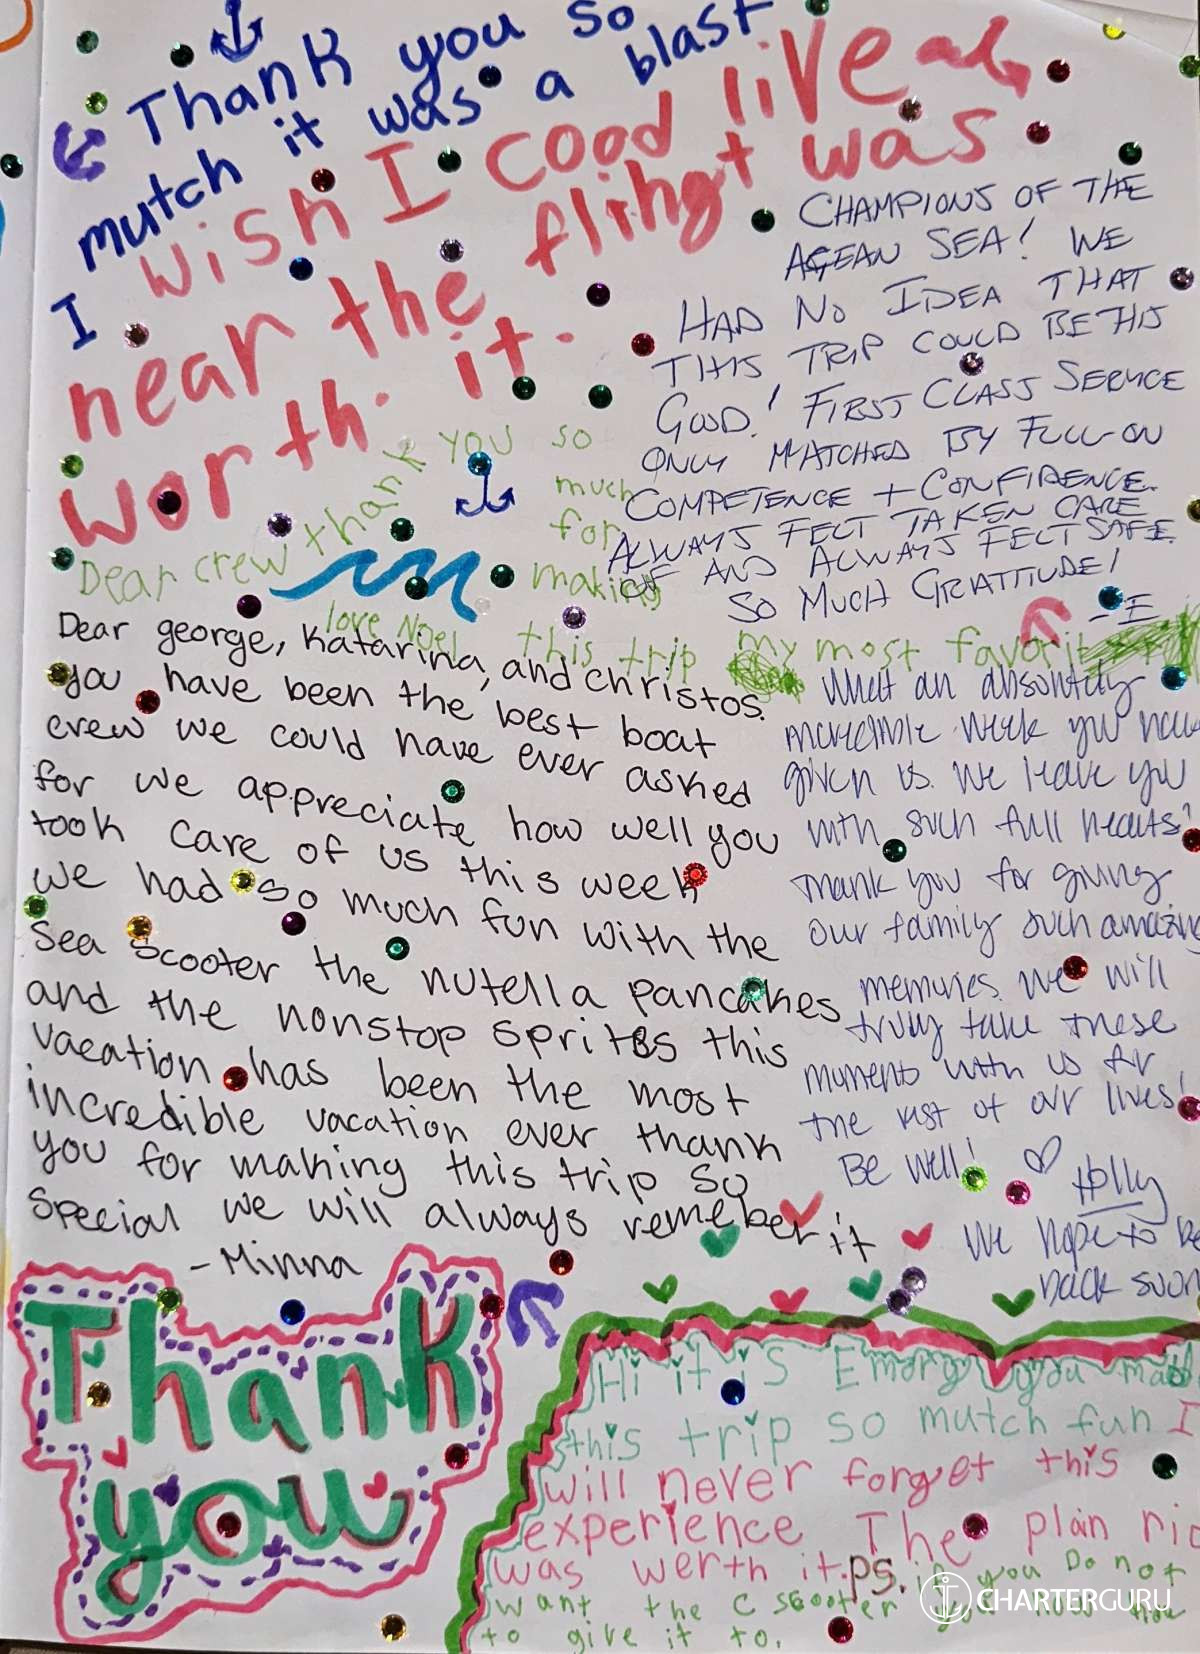 Thank you so
mutch it was a blast
I wish I cood live
near the flihgt was
worth it.
CHAMPIONS OF THE
AGEAN SEA! WE
HAD NO IDEA THAT
THIS TRIP COULD BE THIS
GOOD! FIRST CLASS SERVICE
ONLY MATCHED BY FULL-ON
COMPETENCE + CONFIDENCE.
ALWAYS FELT TAKEN CARE
OF AND ALWAYS FELT SAFE.
SO MUCH GRATTITUDE!
- E
Dear crew thank you so
much
for
making
this trip my most favorit
love Noel
Dear george, Katarina, and christos.
you have been the best boat
crew we could have ever asked
for we appreciate how well you
took care of us this week
we had so much fun with the
Sea Scooter the nutella pancakes
and the nonstop sprites this
vacation has been the most
incredible vacation ever thank
you for making this trip so
special we will always remeber it
- Minna
What an absolutely
incredible week you have
given us. We leave you
with such full hearts!
Thank you for giving
our family such amazing
memories. We will
truly take these
moments with us for
the rest of our lives!
Be well! ♡ Holly
We hope to be
back soon
Thank
you
Hi it is Emory you made
this trip so mutch fun I
will never forget this
experience The plan ri
was werth it. ps. if you Do not
want the C scooter you now how
to give it to.
CHARTERGURU